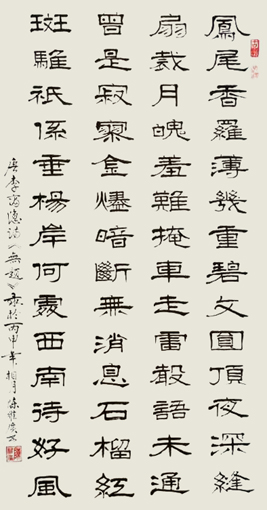 鳳尾香羅薄幾重碧文圓頂夜深縫
扇裁月魄羞難掩車走雷聲語未通
曾是寂寥金燼暗斷無消息石榴紅
斑騅祇係垂楊岸何處西南待好風
唐李商隱詩《無題》 丙申年相月